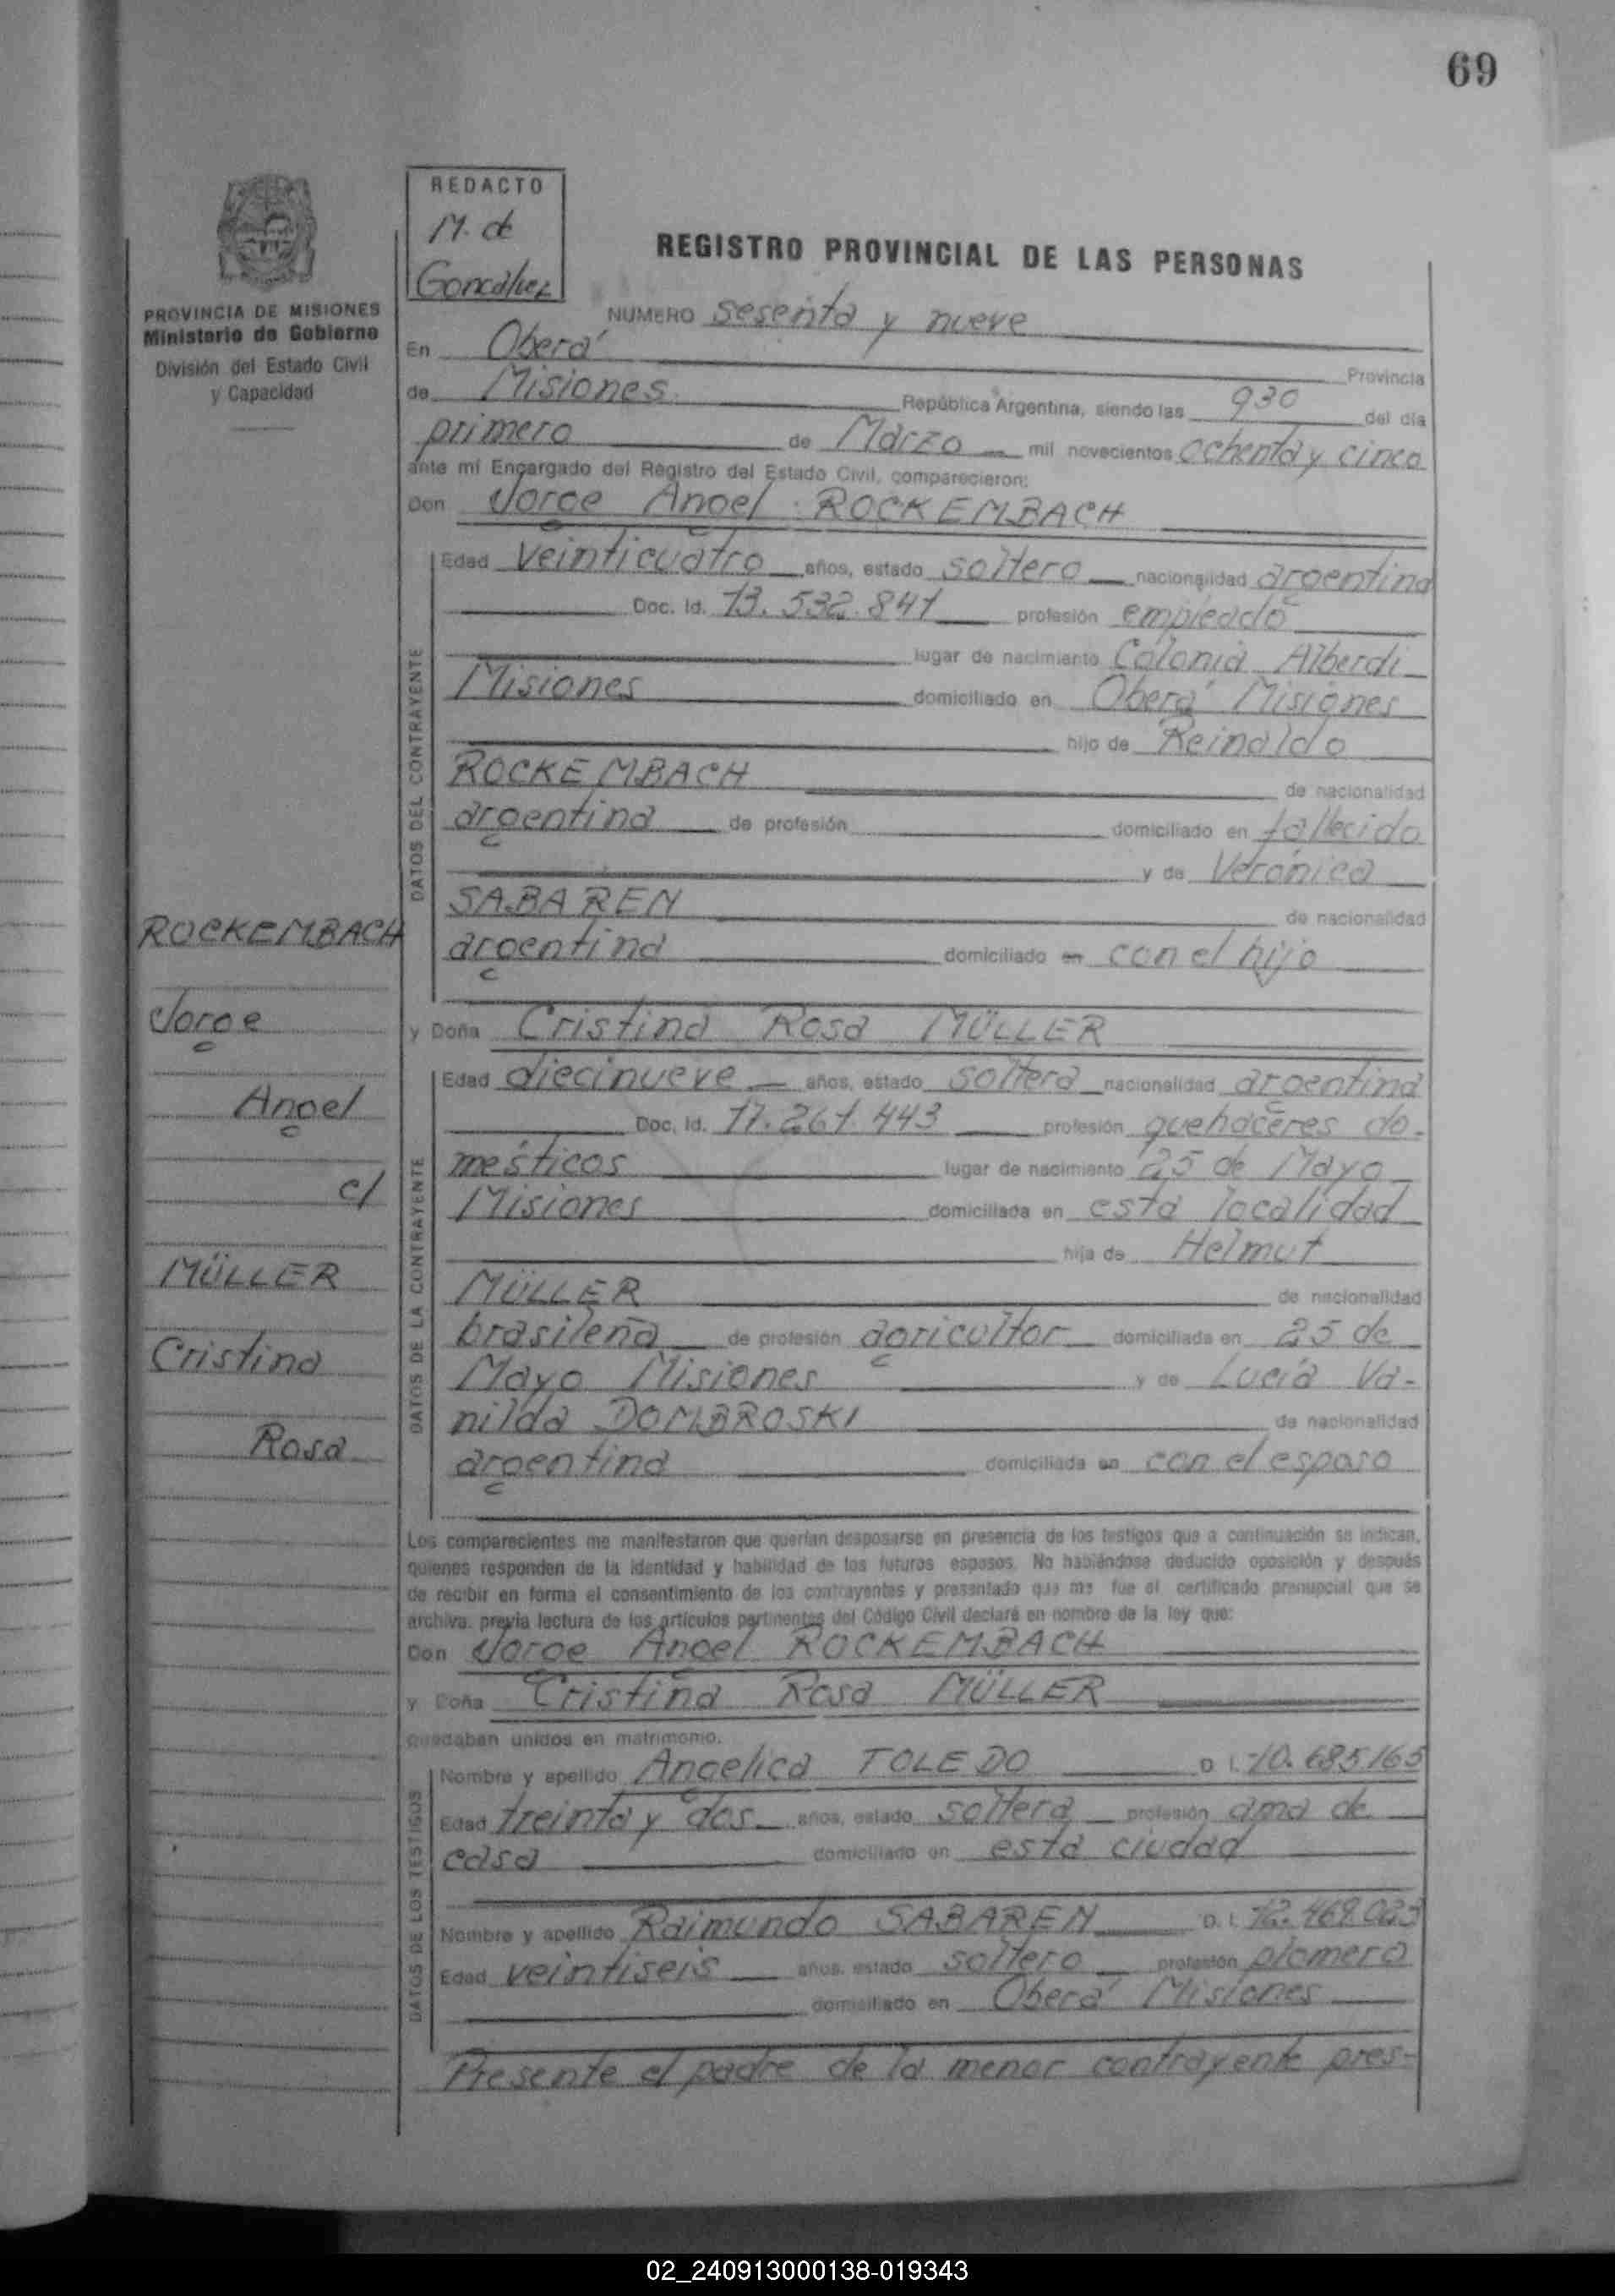 69
REDACTO
M. de
Goncalvez
REGISTRO PROVINCIAL DE LAS PERSONAS
PROVINCIA DE MISIONES
Ministerio de Gobierno
División del Estado Civil
y Capacidad
NUMERO sesenta y nueve
En Oberá Provincia
de Misiones República Argentina, siendo las 930 del día
primero de Marzo mil novecientos ochenta y cinco
ante mí Encargado del Registro del Estado Civil, comparecieron:
Don Jorge Angel ROCKEMBACH
DATOS DEL CONTRAYENTE
Edad veinticuatro años, estado soltero nacionalidad argentina
Doc. Id. 13.532.841 profesión empleado
lugar de nacimiento Colonia Alberdi
Misiones domiciliado en Oberá Misiones
hijo de Reinaldo
ROCKEMBACH de nacionalidad
argentina de profesión domiciliado en fallecido
y de Verónica
SABAREN de nacionalidad
argentina domiciliado en con el hijo
y Doña Cristina Rosa MÜLLER
DATOS DE LA CONTRAYENTE
Edad diecinueve años, estado soltera nacionalidad argentina
Doc. Id. 17.261.443 profesión quehaceres do-
mésticos lugar de nacimiento 25 de Mayo
Misiones domiciliada en esta localidad
hija de Helmut
MÜLLER de nacionalidad
brasileña de profesión agricultor domiciliada en 25 de
Mayo Misiones y de Lucía Va-
nilda DOMBROSKI de nacionalidad
argentina domiciliada en con el esposo
ROCKEMBACH
Jorge
Angel
c/
MÜLLER
Cristina
Rosa
Los comparecientes me manifestaron que querían desposarse en presencia de los testigos que a continuación se indican,
quienes responden de la identidad y habilidad de los futuros esposos. No habiéndose deducido oposición y después
de recibir en forma el consentimiento de los contrayentes y presentado que me fue el certificado prenupcial que se
archiva. previa lectura de los artículos pertinentes del Código Civil declaré en nombre de la ley que:
Don Jorge Angel ROCKEMBACH
y Doña Cristina Rosa MÜLLER
quedaban unidos en matrimonio.
DATOS DE LOS TESTIGOS
Nombre y apellido Angelica TOLEDO D. I. 10.685.165
Edad treinta y dos años, estado soltera profesión ama de
casa domiciliado en esta ciudad
Nombre y apellido Raimundo SABAREN D. I. 12.469.023
Edad veintiseis años, estado soltero profesión plomero
domiciliado en Oberá Misiones
Presente el padre de la menor contrayente pres-
02_240913000138-019343